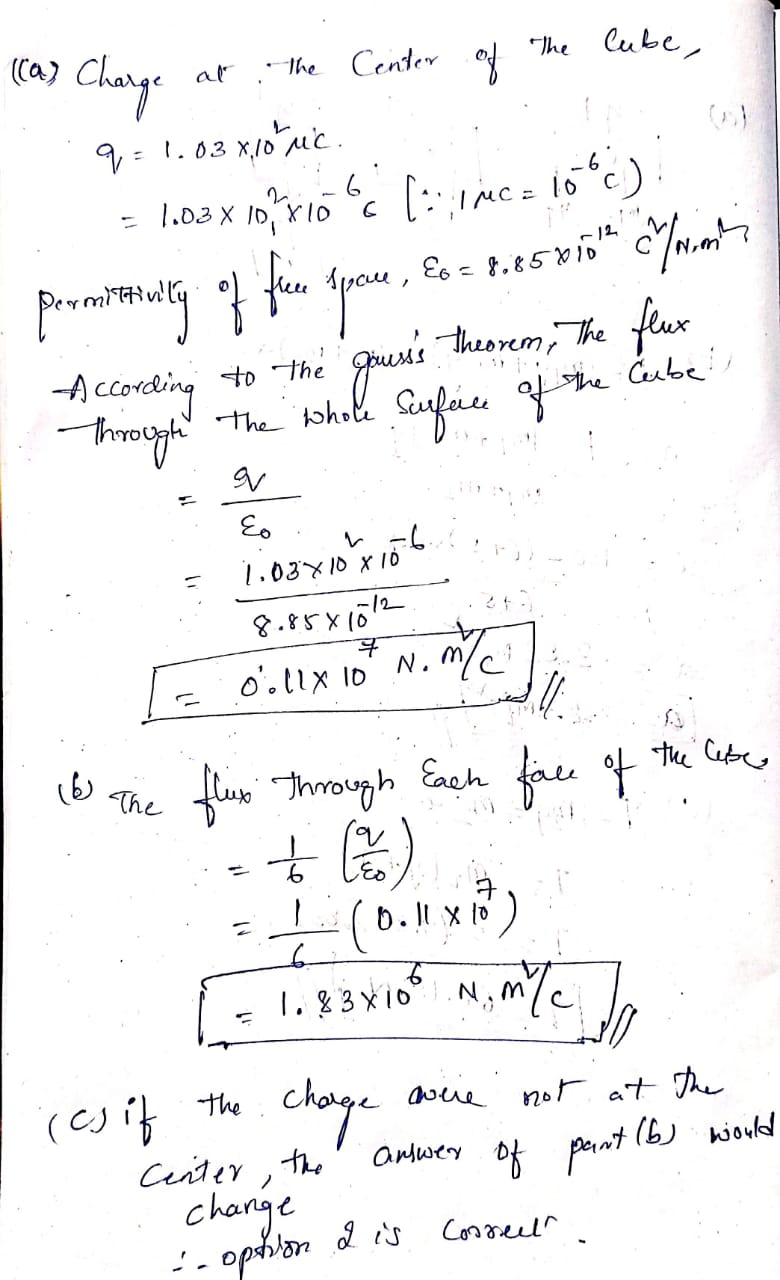 ((a) Charge at the Center of the Cube,
q = 1.03 x 10² μc.
= 1.03 x 10² x 10⁻⁶ c [∵ 1 μc = 10⁻⁶ c)
Permittivity of free space, ε₀ = 8.85 x 10⁻¹² c²/N.m²
According to the gauss's theorem, The flux
through the whole Surface of the Cube
= q/ε₀
= 1.03 x 10² x 10⁻⁶ / 8.85 x 10⁻¹²
= 0.11 x 10⁷ N.m²/c //.
(b) The flux through Each face of the Cube
= 1/6 (q/ε₀)
= 1/6 (0.11 x 10⁷)
= 1.83 x 10⁶ N.m²/c //
(c) if the charge were not at the
Center, the answer of part (b) would
change
∴ option 2 is Correct.